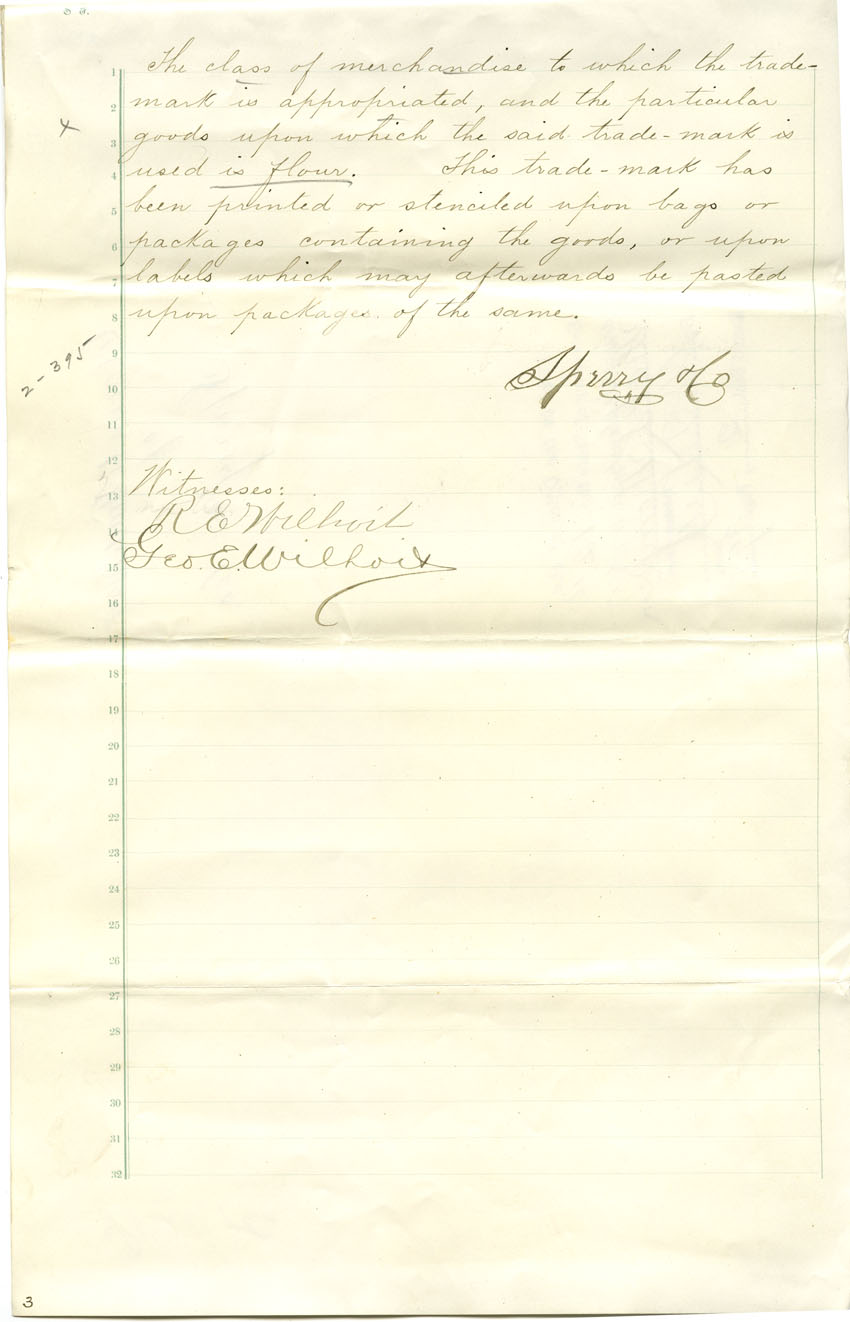 1 The class of merchandise to which the trade-
2 mark is appropriated, and the particular
x
3 goods upon which the said trade-mark is
4 used is flour. This trade-mark has
5 been printed or stenciled upon bags or
6 packages containing the goods, or upon
7 labels which may afterwards be pasted
8 upon packages of the same.
2-395
9
10 Sperry & Co
11
12
13 Witnesses:
14 R E Wilhoit
15 Geo. E. Wilhoit
16
17
18
19
20
21
22
23
24
25
26
27
28
29
30
31
32
3